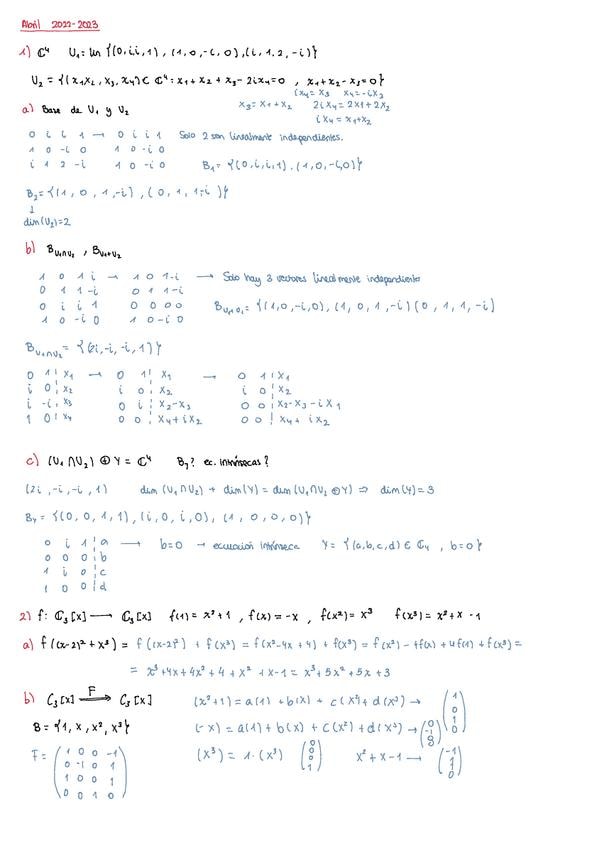 Abril 2022-2023
1) ℂ⁴ U₁ = lin {(0,i,i,1), (1,0,-i,0),(i,1,2,-i)}
U₂ = {(x₁x₂, x₃, x₄) ∈ ℂ⁴: x₁+x₂+x₃-2ix₄=0 , x₁+x₂-x₃=0}
ix₄ = x₃ x₄=-ix₃
x₃ = x₁+x₂ 2ix₄ = 2x₁+2x₂
ix₄ = x₁+x₂
a) Base de U₁ y U₂
0 i i 1 → 0 i i 1 Solo 2 son linealmente independientes.
1 0 -i 0 1 0 -i 0
i 1 2 -i 1 0 -i 0 B₁ = {(0,i,i,1), (1,0,-i,0)}
B₂ = {(1, 0, 1, -i), (0, 1, 1, -i)}
↓
dim(U₂)=2
b) B_{U₁∩U₂} , B_{U₁+U₂}
1 0 1 i → 1 0 1 -i → Solo hay 3 vectores linealmente independiente
0 1 1 -i 0 1 1 -i
0 i i 1 0 0 0 0 B_{U₁+U₂} = {(1,0,-i,0), (1, 0, 1, -i) (0, 1, 1, -i]
1 0 -i 0 1 0 -i 0
B_{U₁∩U₂} = {(2i,-i,-i,1)}
0 1 | x₁ → 0 1 | x₁ → 0 1 | x₁
i 0 | x₂ i 0 | x₂ i 0 | x₂
i -i | x₃ 0 i | x₂-x₃ 0 0 | x₂-x₃-ix₁
1 0 | x₄ 0 0 | x₄+ix₂ 0 0 | x₄+ix₂
c) (U₁∩U₂) ⊕ Y = ℂ⁴ B_Y? ec. intrínsecas?
(2i,-i,-i,1) dim(U₁∩U₂) + dim(Y) = dim(U₁∩U₂⊕Y) ⇒ dim(Y)=3
B_Y = {(0, 0, 1, 1), (i, 0, i, 0), (1, 0, 0, 0)}
0 i 1 | a → b=0 → ecuación intrínseca Y = {(a,b,c,d) ∈ ℂ₄ , b=0}
0 0 0 | b
1 i 0 | c
1 0 0 | d
2) f: ℂ₃[x] → ℂ₃[x] f(1) = x²+1 , f(x) = -x , f(x²) = x³ f(x³) = x²+x-1
a) f((x-2)²+x³) = f((x-2)²) + f(x³) = f(x²-4x+4) + f(x³) = f(x²) - 4f(x) + 4f(1) + f(x³) =
= x³+4x+4x²+4+x²+x-1 = x³+5x²+5x+3
b) ℂ₃[x] F→ ℂ₃[x] (x²+1) = a(1) + b(x) + c(x²) + d(x³) → (1 0 1 0)
B = {1, x, x², x³} (-x) = a(1) + b(x) + c(x²) + d(x³) → (0 -1 0 0)
F = (1 0 0 -1 (x³) = 1·(x³) (0 0 0 1) x²+x-1 → (-1 1 1 0)
0 -1 0 1
1 0 0 1
0 0 1 0)